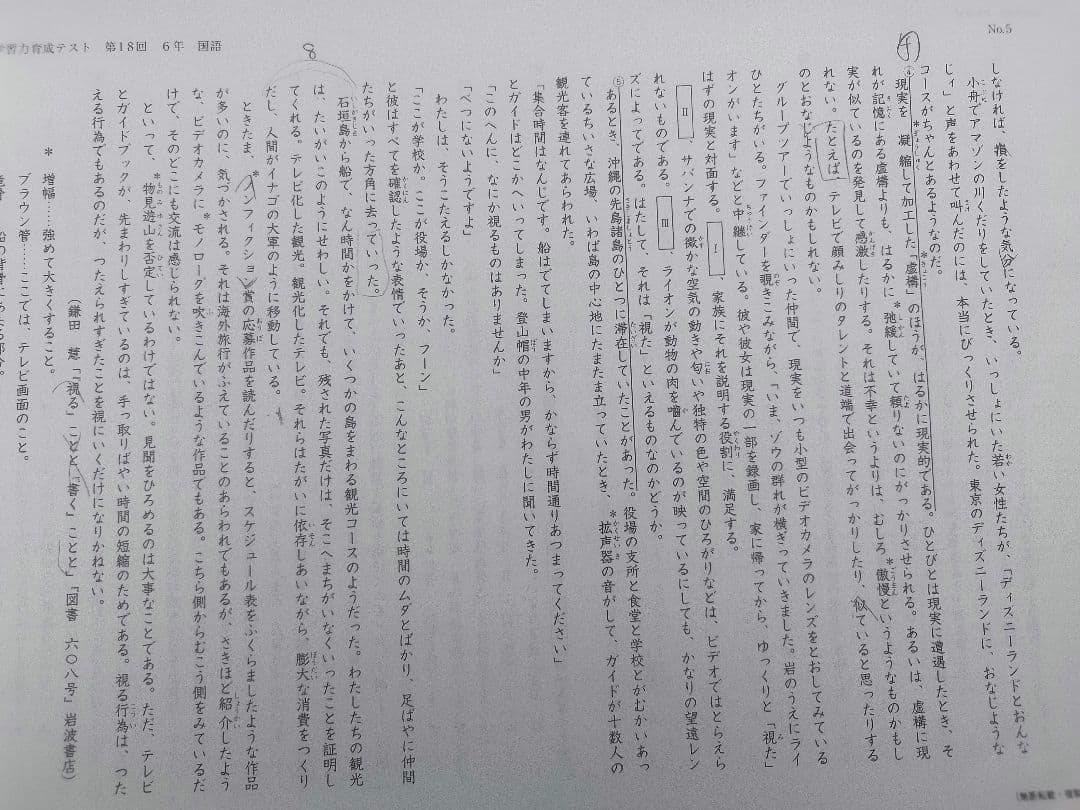 No.5
学習力育成テスト 第18回 6年 国語
しなければ、損をしたような気分になっている。
小舟でアマゾンの川くだりをしていたとき、いっしょにいた若い女性たちが、「ディズニーランドとおんな
じィ」と声をあわせて叫んだのには、本当にびっくりさせられた。東京のディズニーランドに、おなじような
コースがちゃんとあるようなのだ。
④現実を*凝縮して加工した「*虚構」のほうが、はるかに現実的である。ひとびとは現実に遭遇したとき、そ
れが記憶にある虚構よりも、はるかに*弛緩していて頼りないのにがっかりさせられる。あるいは、虚構に現
実が似ているのを発見して感激したりする。それは不幸というよりは、むしろ*傲慢というようなものかもし
れない。たとえば、テレビで顔みしりのタレントと道端で出会ってがっかりしたり、似ていると思ったりする
のとおなじようなものかもしれない。
グループツアーでいっしょにいった仲間で、現実をいつも小型のビデオカメラのレンズをとおしてみている
ひとたちがいる。ファインダーを覗きこみながら、「いま、ゾウの群れが横ぎっていきました。岩のうえにライ
オンがいます」などと中継している。彼や彼女は現実の一部を録画し、家に帰ってから、ゆっくりと「視た」
はずの現実と対面する。 Ⅰ 家族にそれを説明する役割に、満足する。
Ⅱ 、サバンナでの微かな空気の動きや匂いや独特の色や空間のひろがりなどは、ビデオではとらえら
れないものである。 Ⅲ 、ライオンが動物の肉を嚙んでいるのが映っているにしても、かなりの望遠レン
ズによってである。はたして、それは「視た」といえるものなのかどうか。
⑤あるとき、沖縄の先島諸島のひとつに滞在していたことがあった。役場の支所と食堂と学校とがむかいあっ
ているちいさな広場、いわば島の中心地にたまたま立っていたとき、*拡声器の音がして、ガイドが十数人の
観光客を連れてあらわれた。
「集合時間はなんじです。船はでてしまいますから、かならず時間通りあつまってください」
とガイドはどこかへいってしまった。登山帽の中年の男がわたしに聞いてきた。
「このへんに、なにか視るものはありませんか」
「べつにないようですよ」
わたしは、そうこたえるしかなかった。
「ここが学校か。ここが役場か、そうか、フーン」
と彼はすべてを確認したような表情でいったあと、こんなところにいては時間のムダとばかり、足ばやに仲間
たちがいった方角に去っていった。
石垣島から船で、なん時間かをかけて、いくつかの島をまわる観光コースのようだった。わたしたちの観光
は、たいがいこのようにせわしい。それでも、残された写真だけは、そこへまちがいなくいったことを証明し
てくれる。テレビ化した観光。観光化したテレビ。それらはたがいに依存しあいながら、膨大な消費をつくり
だし、人間がイナゴの大軍のように移動している。
ときたま、*ノンフィクション賞の応募作品を読んだりすると、スケジュール表をふくらましたような作品
が多いのに、気づかされる。それは海外旅行がふえていることのあらわれでもあるが、さきほど紹介したよう
な、ビデオカメラに*モノローグを吹きこんでいるような作品でもある。こちら側からむこう側をみているだ
けで、そのどこにも交流は感じられない。
といって、*物見遊山を否定しているわけではない。見聞をひろめるのは大事なことである。ただ、テレビ
とガイドブックが、先まわりしすぎているのは、手っ取りばやい時間の短縮のためである。視る行為は、つた
える行為でもあるのだが、つたえられすぎたことを視にいくだけになりかねない。
（鎌田 慧「『視る』ことと『書く』ことと」「図書 六〇八号」岩波書店）
*増幅……強めて大きくすること。
ブラウン管……ここでは、テレビ画面のこと。
8